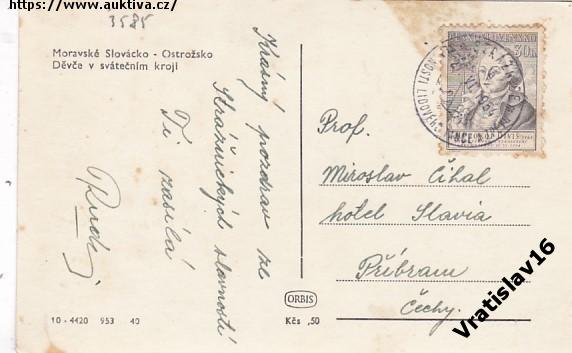 https://www.auktiva.cz/
3585
Moravské Slovácko - Ostrožsko
Děvče v svátečním kroji
Krásný pozdrav ze
Strážnických slavností
Ti zasílá
Rudy
ČESKOSLOVENSKO
30h
PROKOP DIVIŠ
Prof.
Miroslav Číhal
hotel Slavia
Příbram
Čechy.
ORBIS
10 - 4420 953 40
Kčs ,50
Vratislav16